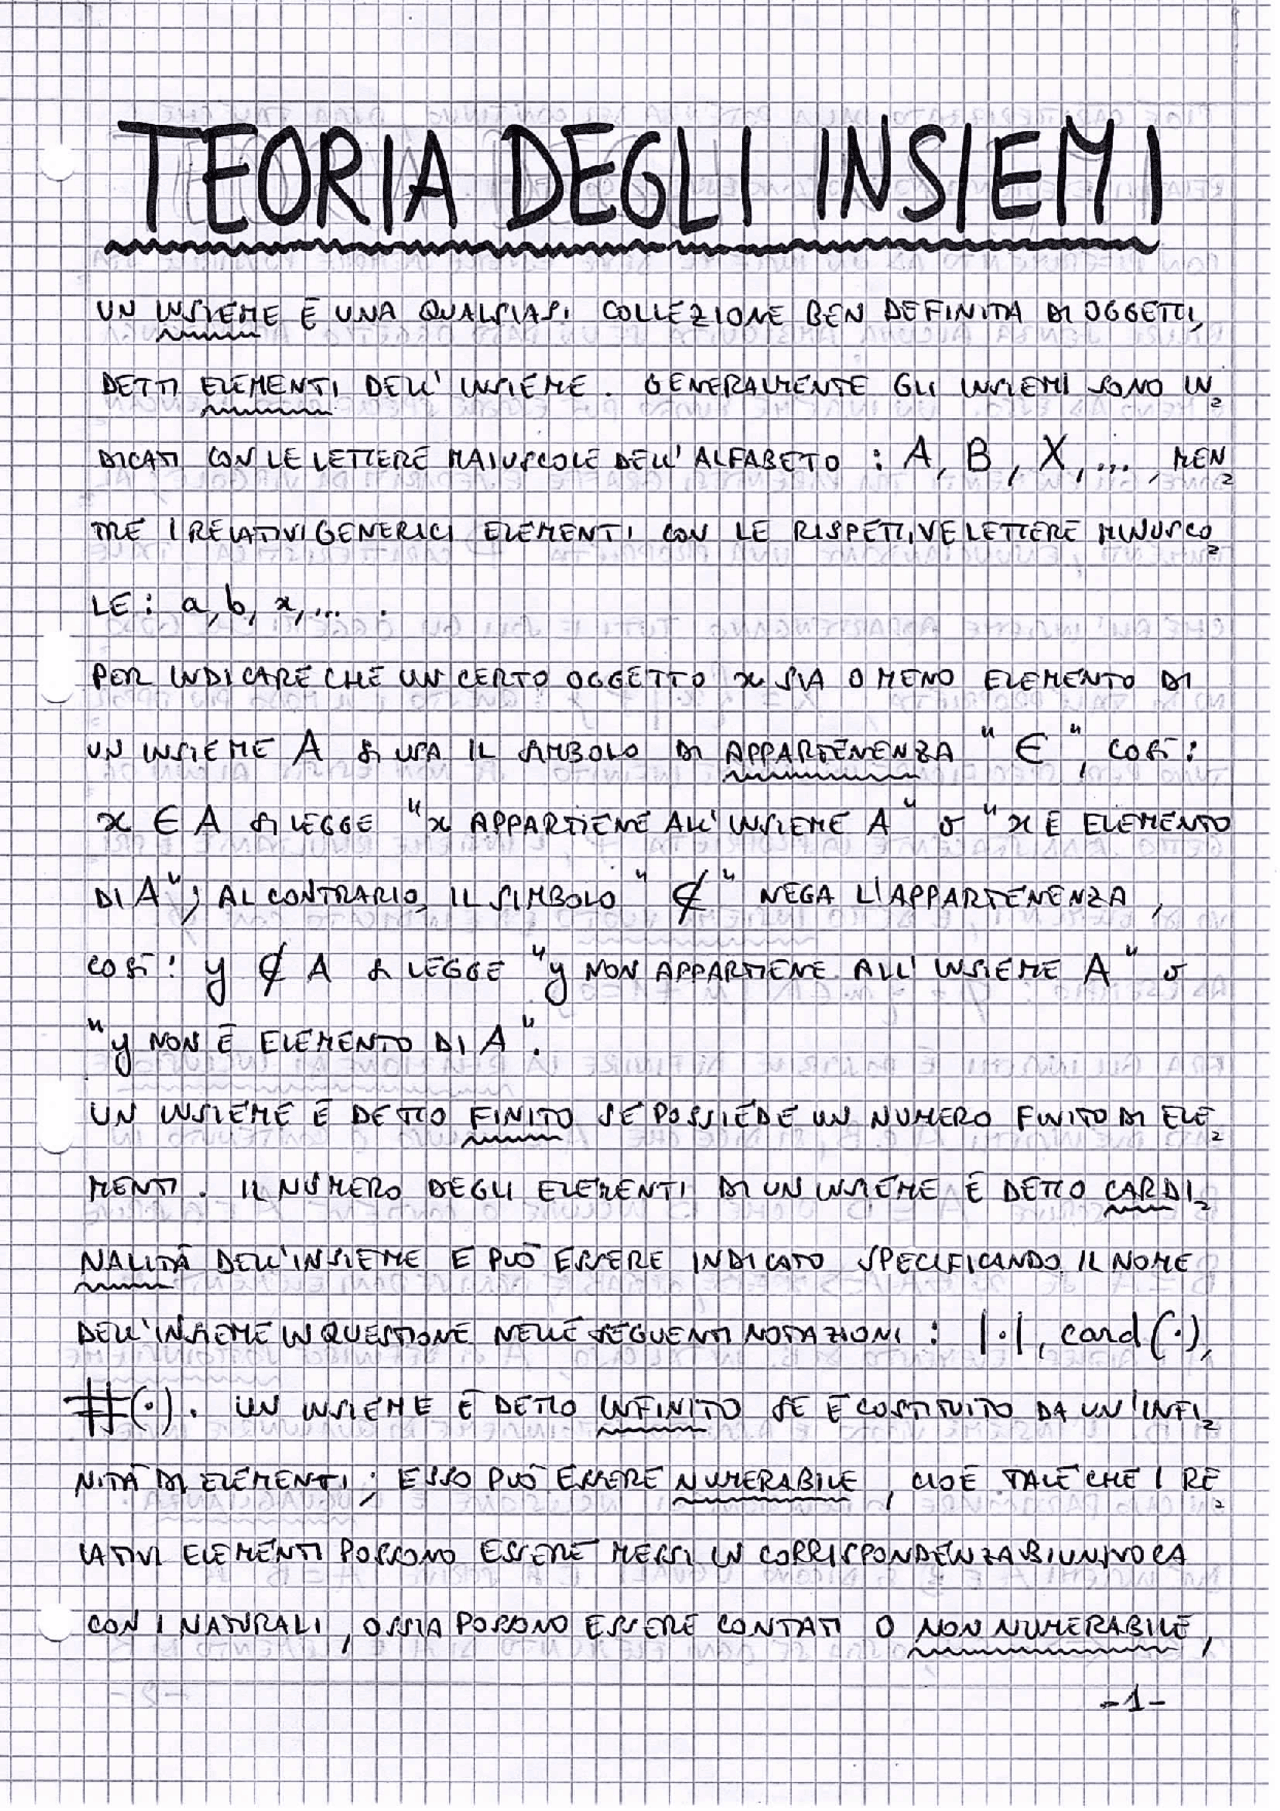 TEORIA DEGLI INSIEMI
UN INSIEME È UNA QUALSIASI COLLEZIONE BEN DEFINITA DI OGGETTI,
DETTI ELEMENTI DELL'INSIEME. GENERALMENTE GLI INSIEMI SONO IN=
DICATI CON LE LETTERE MAIUSCOLE DELL'ALFABETO : A, B, X, ..., MEN=
TRE I RELATIVI GENERICI ELEMENTI CON LE RISPETTIVE LETTERE MINUSCO=
LE : a, b, x, ... .
PER INDICARE CHE UN CERTO OGGETTO x SIA O MENO ELEMENTO DI
UN INSIEME A SI USA IL SIMBOLO DI APPARTENENZA "∈", COSÌ :
x ∈ A SI LEGGE "x APPARTIENE ALL'INSIEME A" O "x È ELEMENTO
DI A"; AL CONTRARIO, IL SIMBOLO "∉" NEGA L'APPARTENENZA,
COSÌ : y ∉ A SI LEGGE "y NON APPARTIENE ALL'INSIEME A" O
"y NON È ELEMENTO DI A".
UN INSIEME È DETTO FINITO SE POSSIEDE UN NUMERO FINITO DI ELE=
MENTI. IL NUMERO DEGLI ELEMENTI DI UN INSIEME È DETTO CARDI=
NALITÀ DELL'INSIEME E PUÒ ESSERE INDICATO SPECIFICANDO IL NOME
DELL'INSIEME IN QUESTIONE NELLE SEGUENTI NOTAZIONI : |·|, card(·),
#(·). UN INSIEME È DETTO INFINITO SE È COSTITUITO DA UN'INFI=
NITÀ DI ELEMENTI; ESSO PUÒ ESSERE NUMERABILE, CIOÈ TALE CHE I RE=
LATIVI ELEMENTI POSSONO ESSERE MESSI IN CORRISPONDENZA BIUNIVOCA
CON I NATURALI, OSSIA POSSONO ESSERE CONTATI O NON NUMERABILE,
-1-